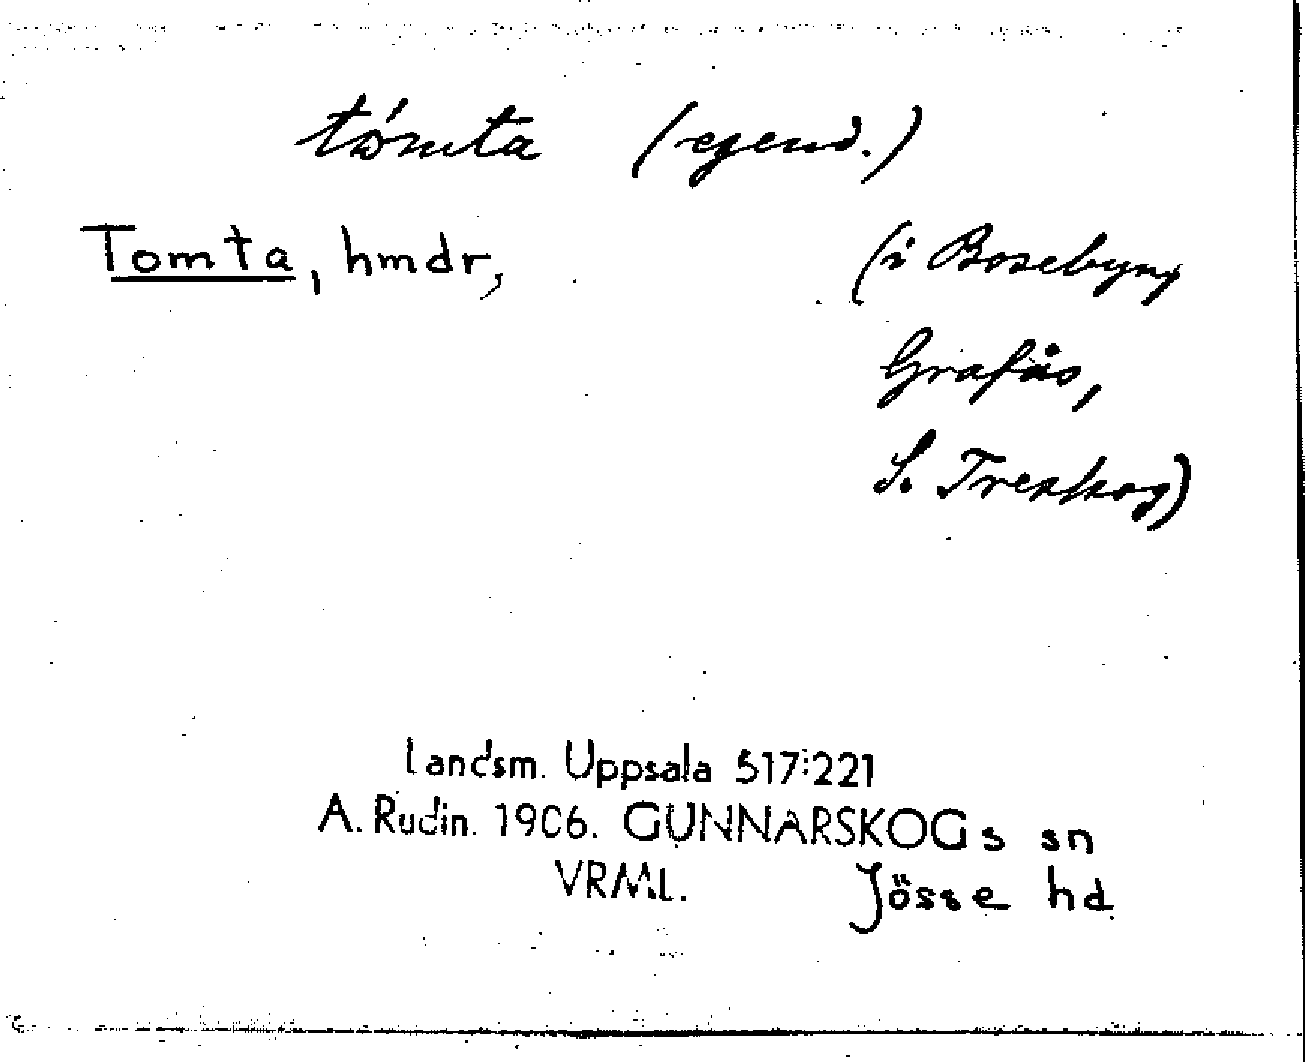 tómta (egend.)
Tomta, hmdr, (i Bosebyn,
Grafås,
S. Treskog)
Landsm. Uppsala 517:221
A. Rudin. 1906. GUNNARSKOGs sn
VRML. Jösse hd